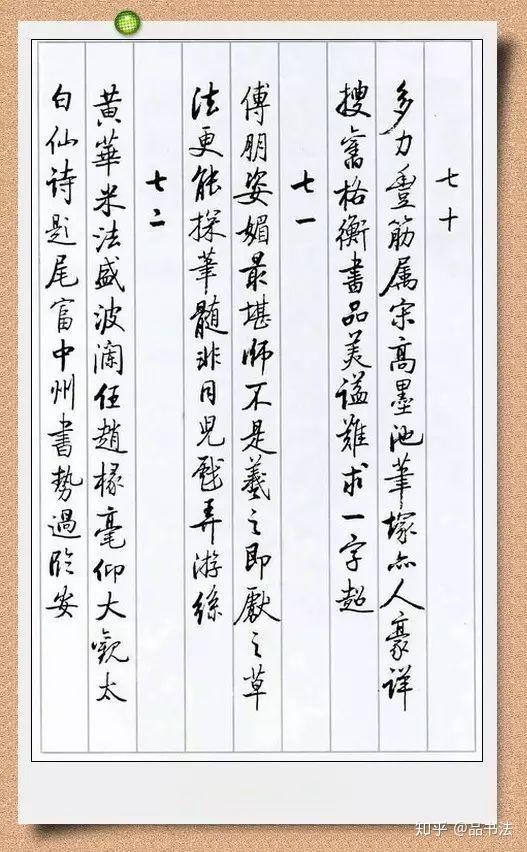 七十
多力豐筋属宋高墨池筆塚亦人豪详
搜舊格衡書品美谥難求一字超
七一
傅朋姿媚最堪師不是羲之即獻之草
法更能探筆髓非同兒戲弄游絲
七二
黄華米法盛波瀾任趙椽毫仰大觀太
白仙诗题尾富中州書勢過临安
知乎 @品书法